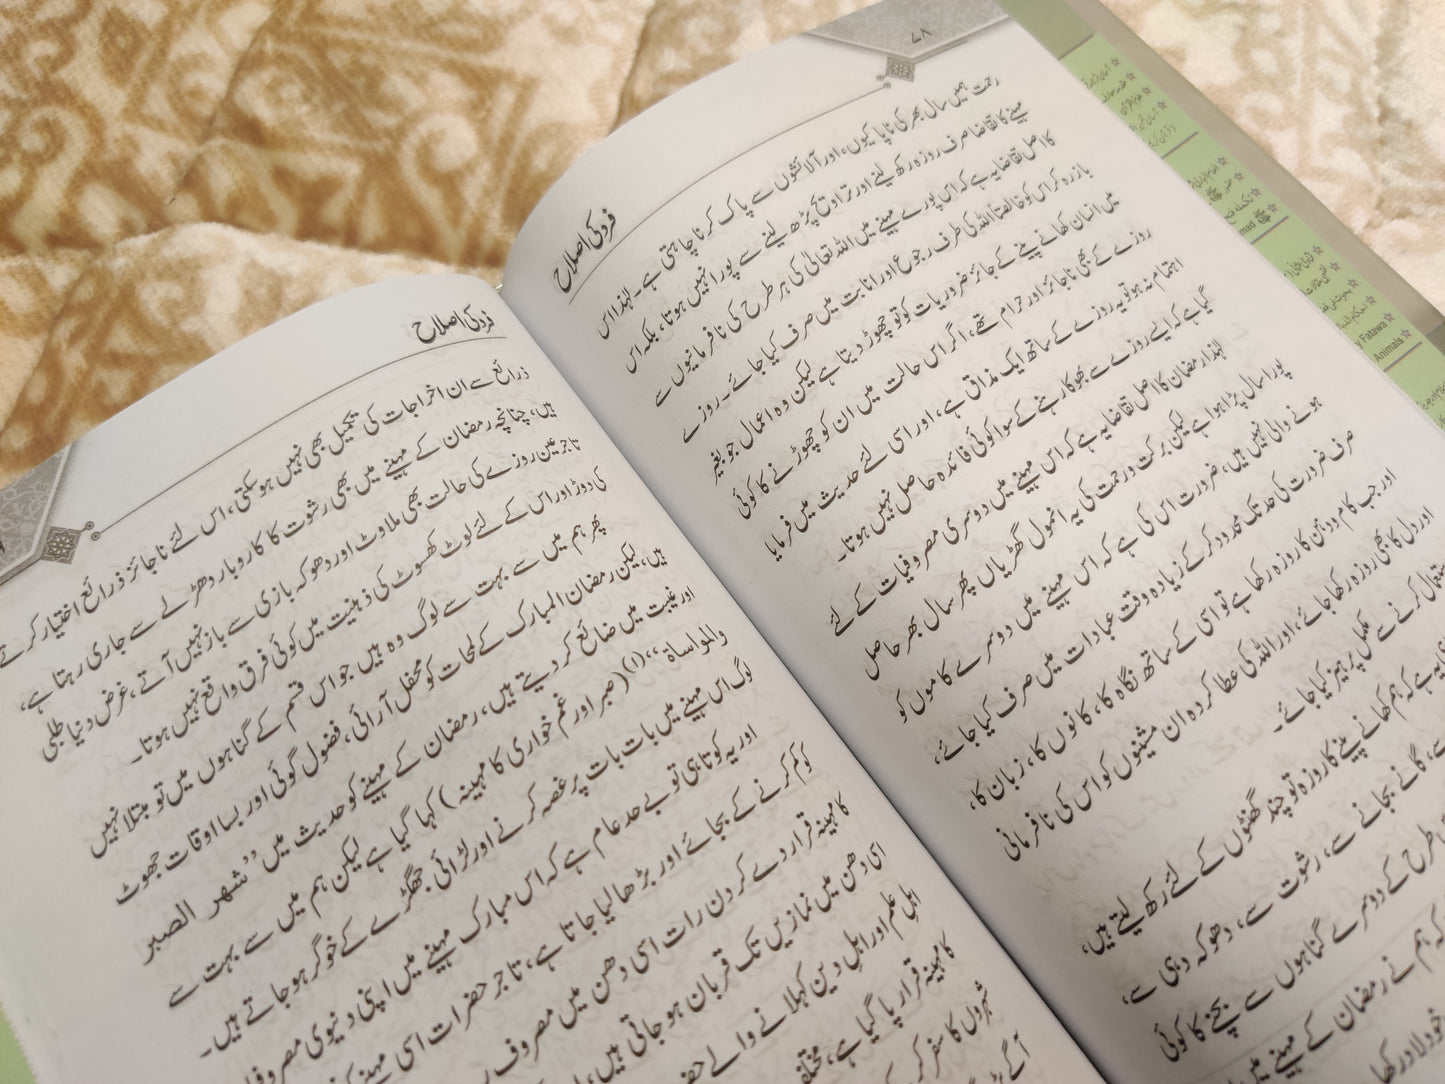 ۷۸
فرد کی اصلاح
رحمت ہمیں سال بھر کی ناپاکیوں، اور آلائشوں سے پاک کرنا چاہتی ہے۔ لہٰذا اس
مہینے کا تقاضا صرف روزہ رکھ لینے اور تراویح پڑھ لینے سے پورا نہیں ہوتا، بلکہ اس
کا اصل تقاضا یہ ہے کہ اس پورے مہینے میں اللہ تعالیٰ کی ہر طرح کی نافرمانیوں سے
باز رہ کر اس کو خالصتاً اللہ کی طرف رجوع اور انابت میں صرف کیا جائے۔ روزے
میں انسان کھانے پینے کے جائز ضروریات کو تو چھوڑ دیتا ہے لیکن وہ اعمال جو بغیر
روزے کے بھی ناجائز اور حرام تھے، اگر اس حالت میں ان کو چھوڑنے کا کوئی
اہتمام نہ ہو تو یہ روزے کے ساتھ ایک مذاق ہے، اور اسی لئے حدیث میں فرمایا
گیا ہے کہ ایسے روزے سے بھوکا رہنے کے سوا کوئی فائدہ حاصل نہیں ہوتا۔
لہٰذا رمضان کا اصل تقاضا یہ ہے کہ اس مہینے میں دوسری مصروفیات کے لئے
پورا سال پڑا ہوا ہے لیکن برکت و رحمت کی یہ انمول گھڑیاں پھر سال بھر حاصل
ہونے والی نہیں ہیں، ضرورت اس کی ہے کہ اس مہینے میں دوسرے کاموں کو
صرف ضرورت کی حد تک محدود کر کے زیادہ وقت عبادات میں صرف کیا جائے،
اور جب کام و دہن کا روزہ رکھا ہے تو اسی کے ساتھ نگاہ کا، کانوں کا، زبان کا،
اور دل کا بھی روزہ رکھا جائے، اور اللہ کی عطا کردہ ان مشینوں کو اس کی نافرمانی
استعمال کرنے سے مکمل پرہیز کیا جائے۔
یہ ہے کہ ہم کھانے پینے کا روزہ تو چند گھنٹوں کے لئے رکھ لیتے ہیں،
سے، گانے بجانے سے، رشوت سے، دھوکہ دہی سے،
طرح کے دوسرے گناہوں سے بچنے کا کوئی
کہ ہم نے رمضان کے مہینے میں
خود لاد رکھا
فرد کی اصلاح
ذرائع سے ان اخراجات کی تکمیل بھی نہیں ہو سکتی، اس لئے ناجائز ذرائع اختیار کرتے
ہیں، چنانچہ رمضان کے مہینے میں بھی رشوت کا کاروبار دھڑلے سے جاری رہتا ہے،
تاجر عین روزے کی حالت بھی ملاوٹ اور دھوکہ بازی سے باز نہیں آتے، غرض دنیا طلبی
کی دوڑ اور اس کے لئے لوٹ کھسوٹ کی ذہنیت میں کوئی فرق واقع نہیں ہوتا۔
پھر ہم میں سے بہت سے لوگ وہ ہیں جو اس قسم کے گناہوں میں تو مبتلا نہیں
ہیں، لیکن رمضان المبارک کے لمحات کو محفل آرائی، فضول گوئی اور بسا اوقات جھوٹ
اور غیبت میں ضائع کر دیتے ہیں، رمضان کے مہینے کو حدیث میں ”شهر الصبر
والمواساة“ (۱) (صبر اور غم خواری کا مہینہ) کہا گیا ہے لیکن ہم میں سے بہت سے
لوگ اس مہینے میں بات بات پر غصہ کرنے اور لڑائی جھگڑے کے خوگر ہو جاتے ہیں۔
اور یہ کوتاہی تو بے حد عام ہے کہ اس مبارک مہینے میں اپنی دنیوی
کو کم کرنے کے بجائے اور بڑھا لیا جاتا ہے، تاجر حضرات اسی
کا مہینہ قرار دے کر دن رات اسی دھن میں مصروف
اسی دھن میں نمازیں تک قربان ہو جاتی ہیں،
اہلِ علم اور اہلِ دین کہلانے والے
کا مہینہ قرار پا گیا ہے،
شہروں کا سفر
آگے